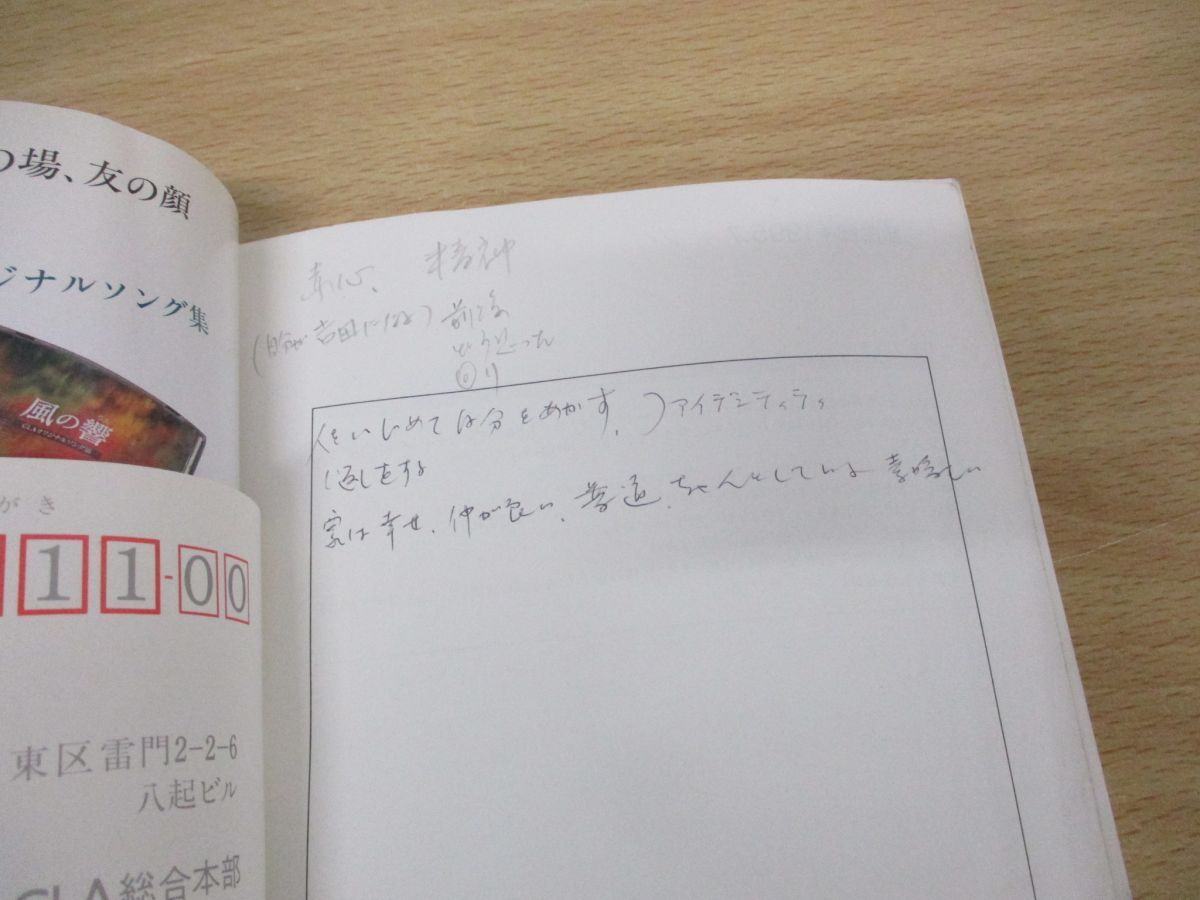 の場、友の顔
ジナルソング集
風の響
がき
11-00
東区雷門2-2-6
八起ビル
GLA総合本部
精神
(自分が吉田になる) 前後
どう思った
回り
をいじめて自分をあかす。) アイデンティティ
返しをする
家は幸せ、仲が良い、普通、ちゃんとしている 素晴しい